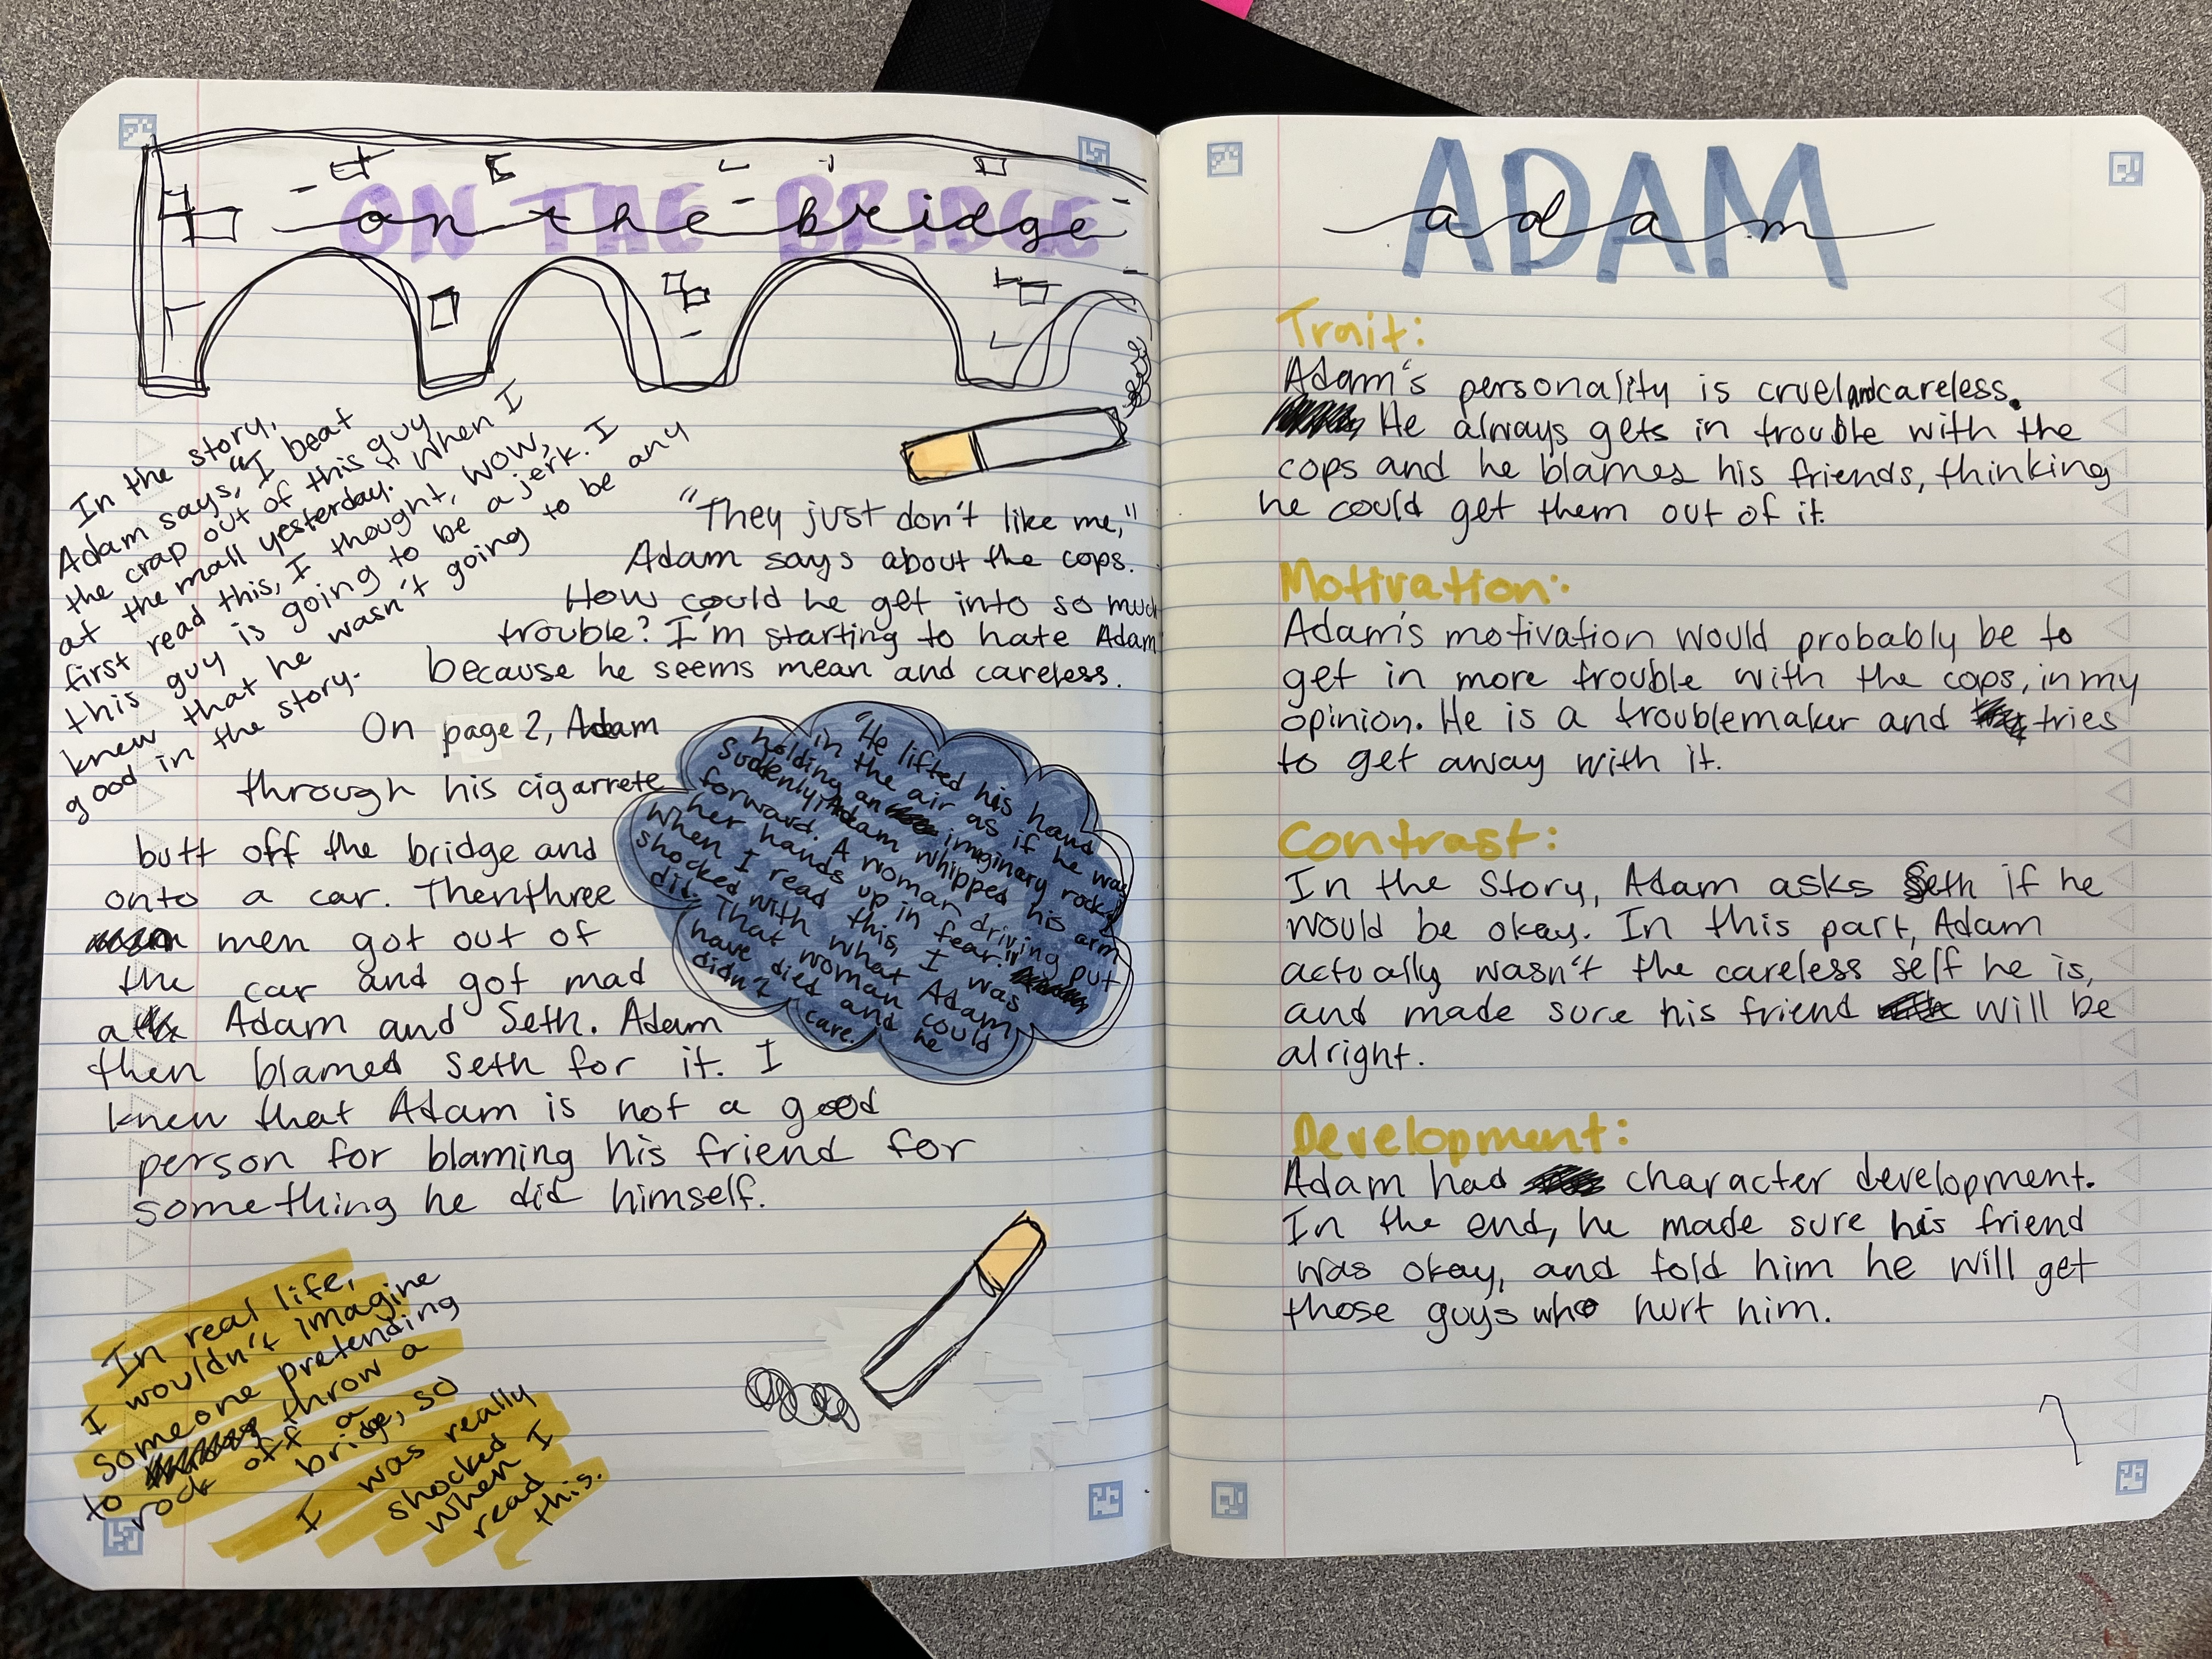 ON THE BRIDGE
on the bridge
In the story,
Adam says, "I beat
the crap out of this guy
at the mall yesterday." When I
first read this, I thought, wow,
this guy is going to be a jerk. I
knew that he wasn't going to be any
good in the story.
"They just don't like me,"
Adam says about the cops.
How could he get into so much
trouble? I'm starting to hate Adam
because he seems mean and careless.
On page 2, Adam
through his cigarrete
butt off the bridge and
onto a car. Then three
men got out of
the car and got mad
at Adam and Seth. Adam
then blamed Seth for it. I
knew that Adam is not a good
person for blaming his friend for
something he did himself.
"He lifted his hand
in the air as if he was
holding an imaginary rock.
Suddenly, Adam whipped his arm
forward. A woman driving put
her hands up in fear."
When I read this, I was
shocked with what Adam
did. That woman could
have died and he
didn't care.
In real life,
I wouldn't imagine
someone pretending
to throw a
rock off a
bridge, so
I was really
shocked
when I
read
this.
ADAM
adam
Trait:
Adam's personality is cruel and careless.
He always gets in trouble with the
cops and he blames his friends, thinking
he could get them out of it.
Motivation:
Adam's motivation would probably be to
get in more trouble with the cops, in my
opinion. He is a troublemaker and tries
to get away with it.
Contrast:
In the story, Adam asks Seth if he
would be okay. In this part, Adam
actually wasn't the careless self he is,
and made sure his friend will be
alright.
Development:
Adam had character development.
In the end, he made sure his friend
was okay, and told him he will get
those guys who hurt him.